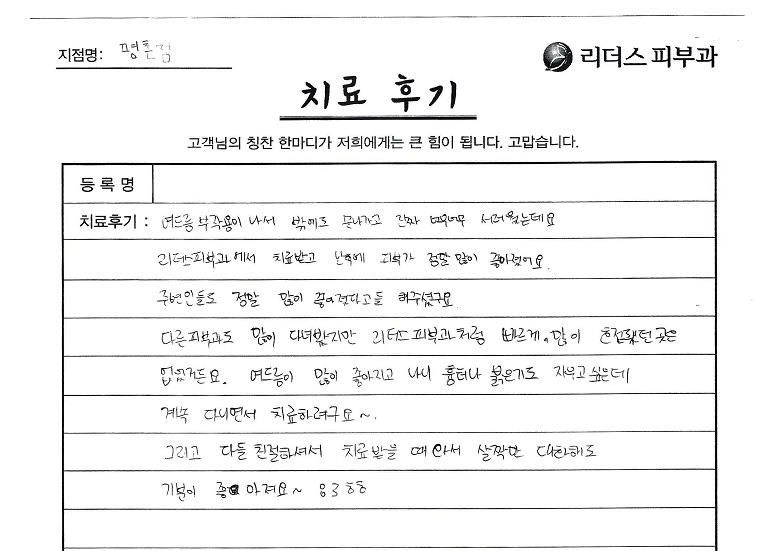 지점명: 평촌점
리더스 피부과
치료 후기
고객님의 칭찬 한마디가 저희에게는 큰 힘이 됩니다. 고맙습니다.
등록명
치료후기 : 여드름 부작용이 나서 밖에도 못나가고 진짜 너무너무 서러웠는데요
리더스피부과에서 치료받고 난후에 피부가 정말 많이 좋아졌어요.
주변인들도 정말 많이 좋아졌다고들 해주셨구요
다른피부과도 많이 다녀봤지만 리더스피부과처럼 빠르게, 많이 호전됐던 곳은
없었거든요. 여드름이 많이 좋아지고 나니 흉터나 붉은기도 지우고 싶은데
계속 다니면서 치료하려구요~.
그리고 다들 친절하셔서 치료받을 때 와서 살짝만 대화해도
기분이 좋아져요~ ㅎ3ㅎㅎ